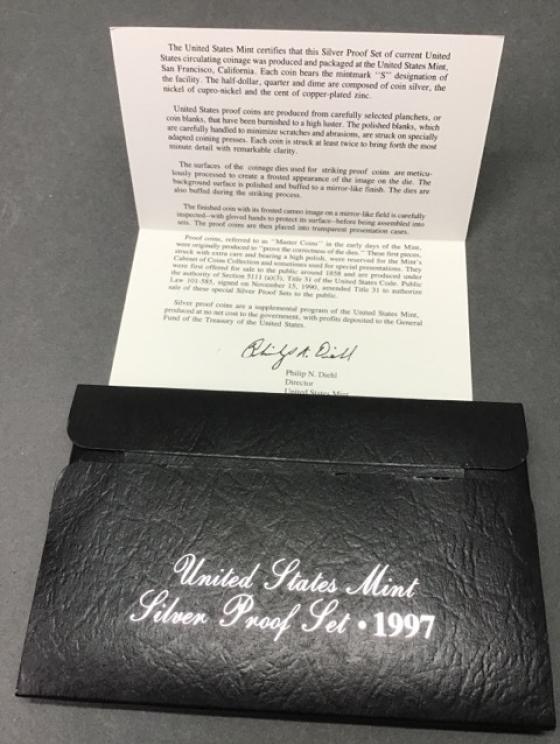 The United States Mint certifies that this Silver Proof Set of current United
States circulating coinage was produced and packaged at the United States Mint,
San Francisco, California. Each coin bears the mintmark "S" designation of
the facility. The half-dollar, quarter and dime are composed of coin silver, the
nickel of cupro-nickel and the cent of copper-plated zinc.
United States proof coins are produced from carefully selected planchets, or
coin blanks, that have been burnished to a high luster. The polished blanks, which
are carefully handled to minimize scratches and abrasions, are struck on specially
adapted coining presses. Each coin is struck at least twice to bring forth the most
minute detail with remarkable clarity.
The surfaces of the coinage dies used for striking proof coins are meticu-
lously processed to create a frosted appearance of the image on the die. The
background surface is polished and buffed to a mirror-like finish. The dies are
also buffed during the striking process.
The finished coin with its frosted cameo image on a mirror-like field is carefully
inspected—with gloved hands to protect its surface—before being assembled into
sets. The proof coins are then placed into transparent presentation cases.
Proof coins, referred to as "Master Coins" in the early days of the Mint,
were originally produced to "prove the correctness of the dies." These first pieces,
struck with extra care and bearing a high polish, were reserved for the Mint's
Cabinet of Coins Collection and sometimes used for special presentations. They
were first offered for sale to the public around 1858 and are produced under
the authority of Section 5111 (a)(3), Title 31 of the United States Code. Public
Law 101-585, signed on November 15, 1990, amended Title 31 to authorize
sale of these special Silver Proof Sets to the public.
Silver proof coins are a supplemental program of the United States Mint,
produced at no net cost to the government, with profits deposited to the General
Fund of the Treasury of the United States.
Philip N. Diehl
Philip N. Diehl
Director
United States Mint
United States Mint
Silver Proof Set • 1997